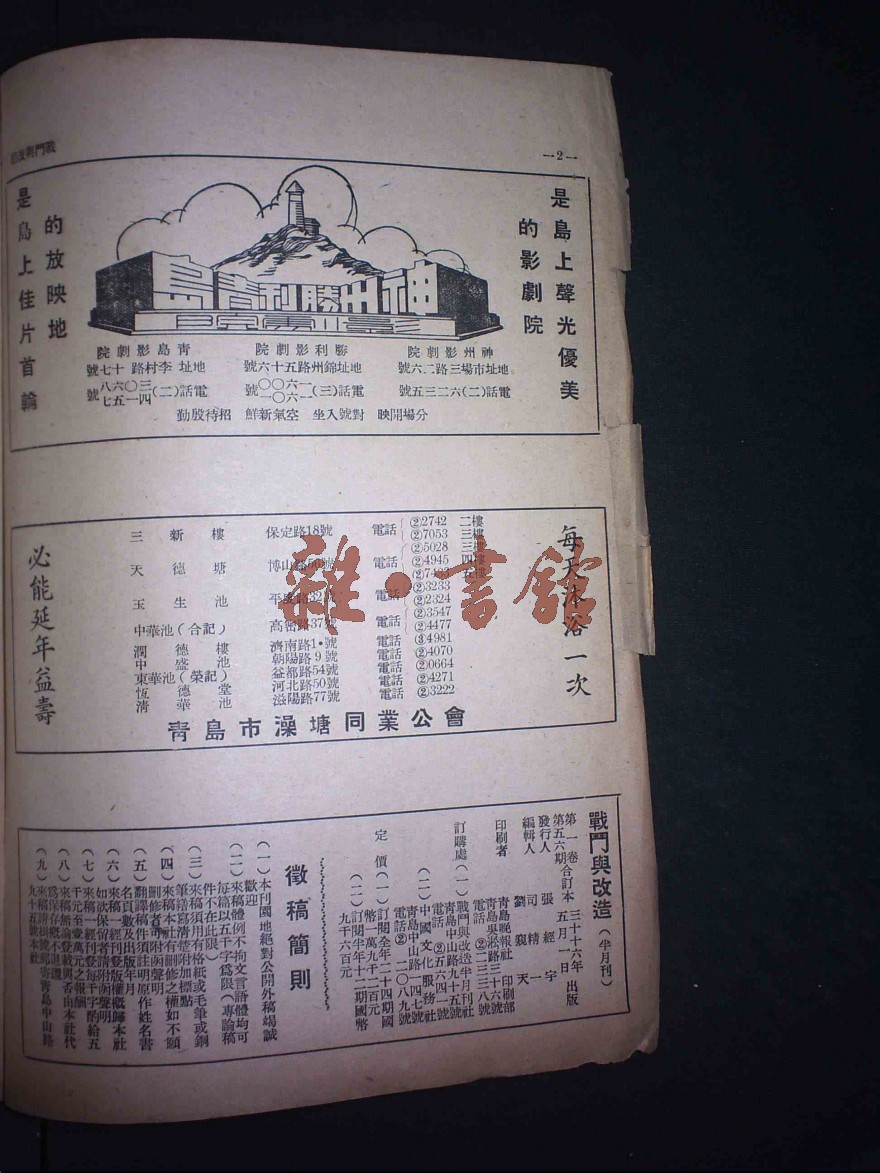 —2—
是島上聲光優美
的影劇院
的放映地
是島上佳片首輪
神州影劇院
地址市場三路二六號
電話(二)六二三五號
勝利影劇院
地址錦州路五十六號
青島影劇院
地址李村路十七號
分場開映 對號入坐 空氣新鮮 招待殷勤
每天沐浴一次
三新樓 保定路18號 電話 ②2742 二樓
②7053 三樓
②5028 三樓
天德塘 博山路 電話 ②4945 四樓
五樓
玉生池 平度路32號 電話 ②3233
②2324
中華池(合記) 高密路37號 電話 ②3547
②4477
潤德樓 濟南路1 號 電話 ③4981
中盛池 朝陽路9號 電話 ②4070
東華池(榮記) 益都路54號 電話 ②0664
恆德堂 河北路50號 電話 ②4271
清華池 滋陽路77號 電話 ②3222
必能延年益壽
青島市澡塘同業公會
戰鬥與改造(半月刊)
第一卷 三十六年出版
第五六期合訂本 五月一日
發行人 張經宇
編輯人 司精一
劉觀天
印刷者 青島晚報社印刷部
青島吳淞路三十六號
電話②二三三八號
訂購處(一)戰鬥與改造半月刊社
青島中山路九十五號
電話②五六四一號
(二)中國文化服務社
青島中山路一四七號
電話②二〇八九號
定價(一)訂閱全年二十四期國
幣一萬九千二百元
(二)訂閱半年十二期國幣
九千六百元
徵稿簡則
(一)本刊園地絕對公開外稿竭誠
歡迎
(二)來稿體例不拘文言語體均可
每篇以五千字爲限(專論稿
件不在此限)
(三)來稿須用有格紙或毛筆或鋼
筆繕寫清楚附加標點
(四)來稿本社有刪修之權如不願
刪修者請附函聲明
(五)翻譯稿件須註明原作姓名書
名頁數及出版年月
(六)來稿一經刊登版權概歸本社
如欲保留者請附函聲明
(七)來稿一經刊登每千字酌給五
千元至壹萬元之報酬
(八)來稿無論登載與否由本社代
爲保存概不退還
(九)來稿請掛號郵寄青島中山路
九十五號本社
雜·書館